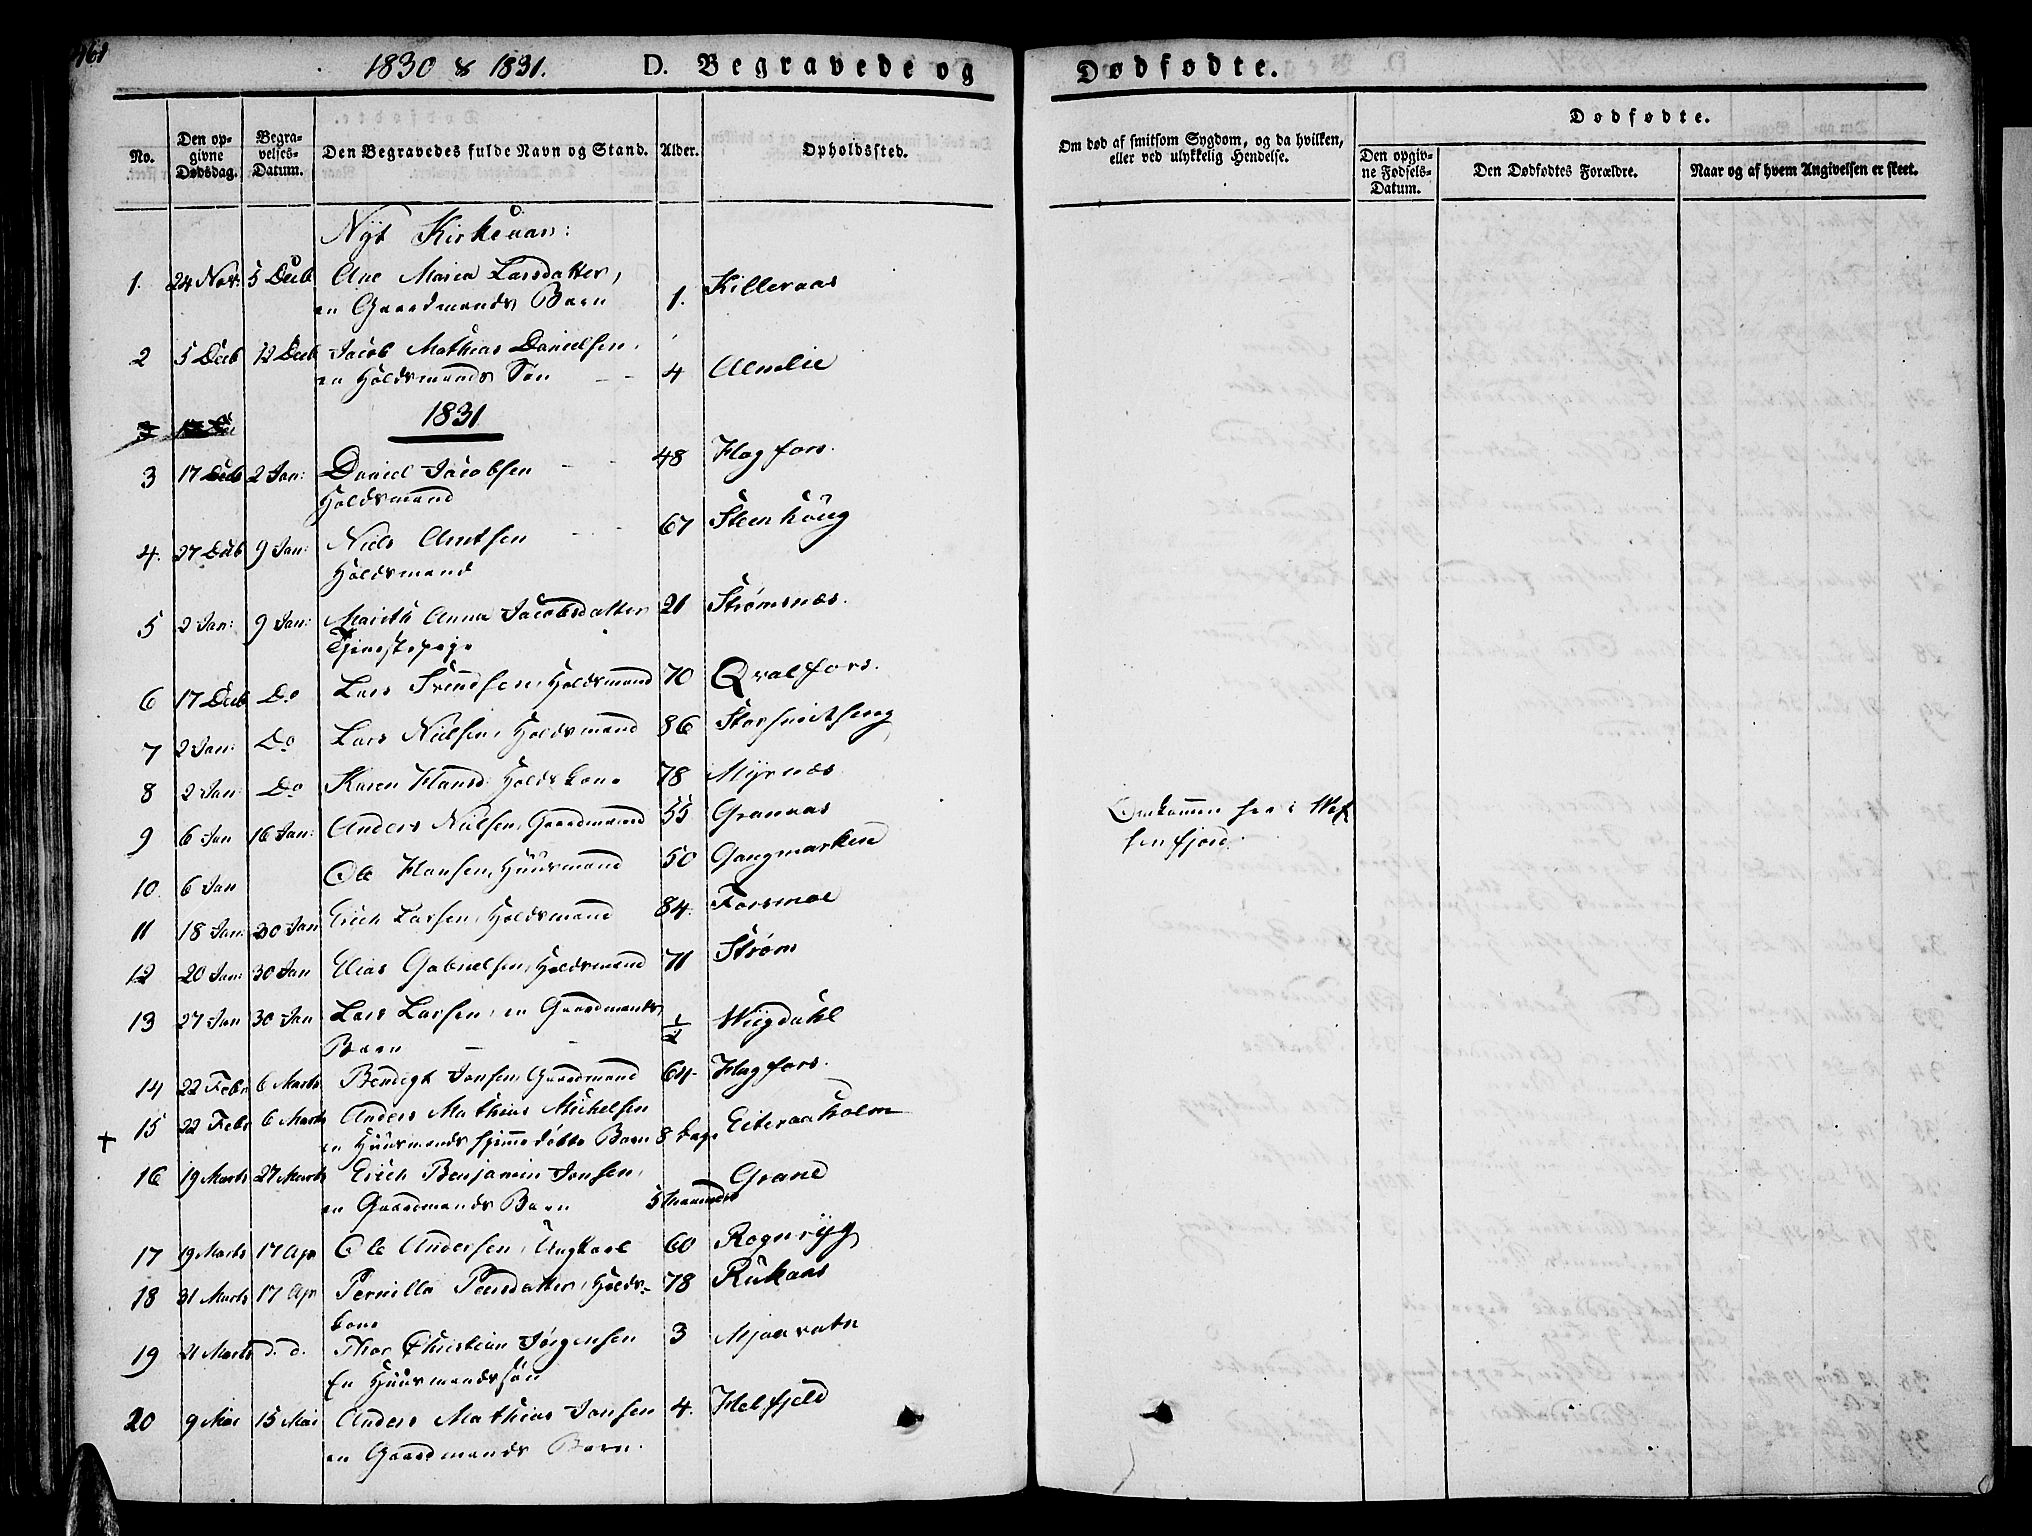 461
1830 & 1831.
D. Begravede og Dødfødte.
No.
Den op-
givne
Dødsdag.
Begra-
velses-
Datum.
Den Begravedes fulde Navn og Stand.
Alder.
Opholdssted.
Om død af smitsom Sygdom, og da hvilken,
eller ved ulykkelig Hendelse.
Dødfødte.
Den opgiv-
ne Fødsels-
Datum.
Den Dødfødtes Forældre.
Naar og af hvem Angivelsen er skeet.
Nyt Kirkeaar:
1. 24 Nov: 5 Decb Ane Maria Larsdatter, 1. Killeraas
en Gaardmands Barn
2 5 Decb 12 Decb Jacob Mathias Danielsen, 4 Almlie
en Holdsmands Søn
1831
3 17 Decb 2 Jan: Daniel Jacobsen 48 Flagfors.
Holdsmand
4. 27 Decb 9 Jan: Niels Arntsen 67 Steenhoug
Holdsmand
5 2 Jan: 9 Jan: Marith Anna Jacobsdatter 21 Strømsnæs.
Tjenestepige
6 17 Decb Do Lars Svendsen, Holdsmand 70 Qvalfors.
7 2 Jan: Do Lars Nielsen, Holdsmand 86 Storsmitseng
8 2 Jan: Do Karen Hansd: Holdskone 78 Myrnæs.
9 6 Jan 16 Jan: Anders Nielsen, Gaardmand 55 Granaas
Omkommen her i Wef
senfjord.
10. 6 Jan Ole Hansen, Huusmand 50 Gangmarken
11 18 Jan: 30 Jan Erich Larsen, Holdsmand 84. Forsmoe
12 20 Jan: 30 Jan Elias Gabrielsen, Holdsmand 71 Strøm
13 27 Jan 30 Jan Lars Larsen, en Gaardmands 1/2 Wiigdahl
Barn
14 22 Febr 6 Marts Bendigt Jonsen, Gaardmand 64. Flagfors.
+ 15 22 Febr 6 Marts Anders Mathias Michelsen 8 Dage Eiteraaholm
en Huusmands hjemmedøbte Barn
16 19 Marts 27 Marts Erich Benjamin Jonsen, 5 Maaneder Grane
en Gaardmands Barn
17 19 Marts 17 Apr Ole Andersen, Ungkarl 60 Rognryg
18 31 Marts 17 Apr Pernilla Pedersdatter, Holds- 78 Rukaas
kone
19 21 Marts d. d. Thor Christian Jørgensen 3 Mjaavatn
En Huusmandssøn
20 9 Mai 15 Mai Anders Mathias Jonsen 4. Helfjeld
en Gaardmands Barn.